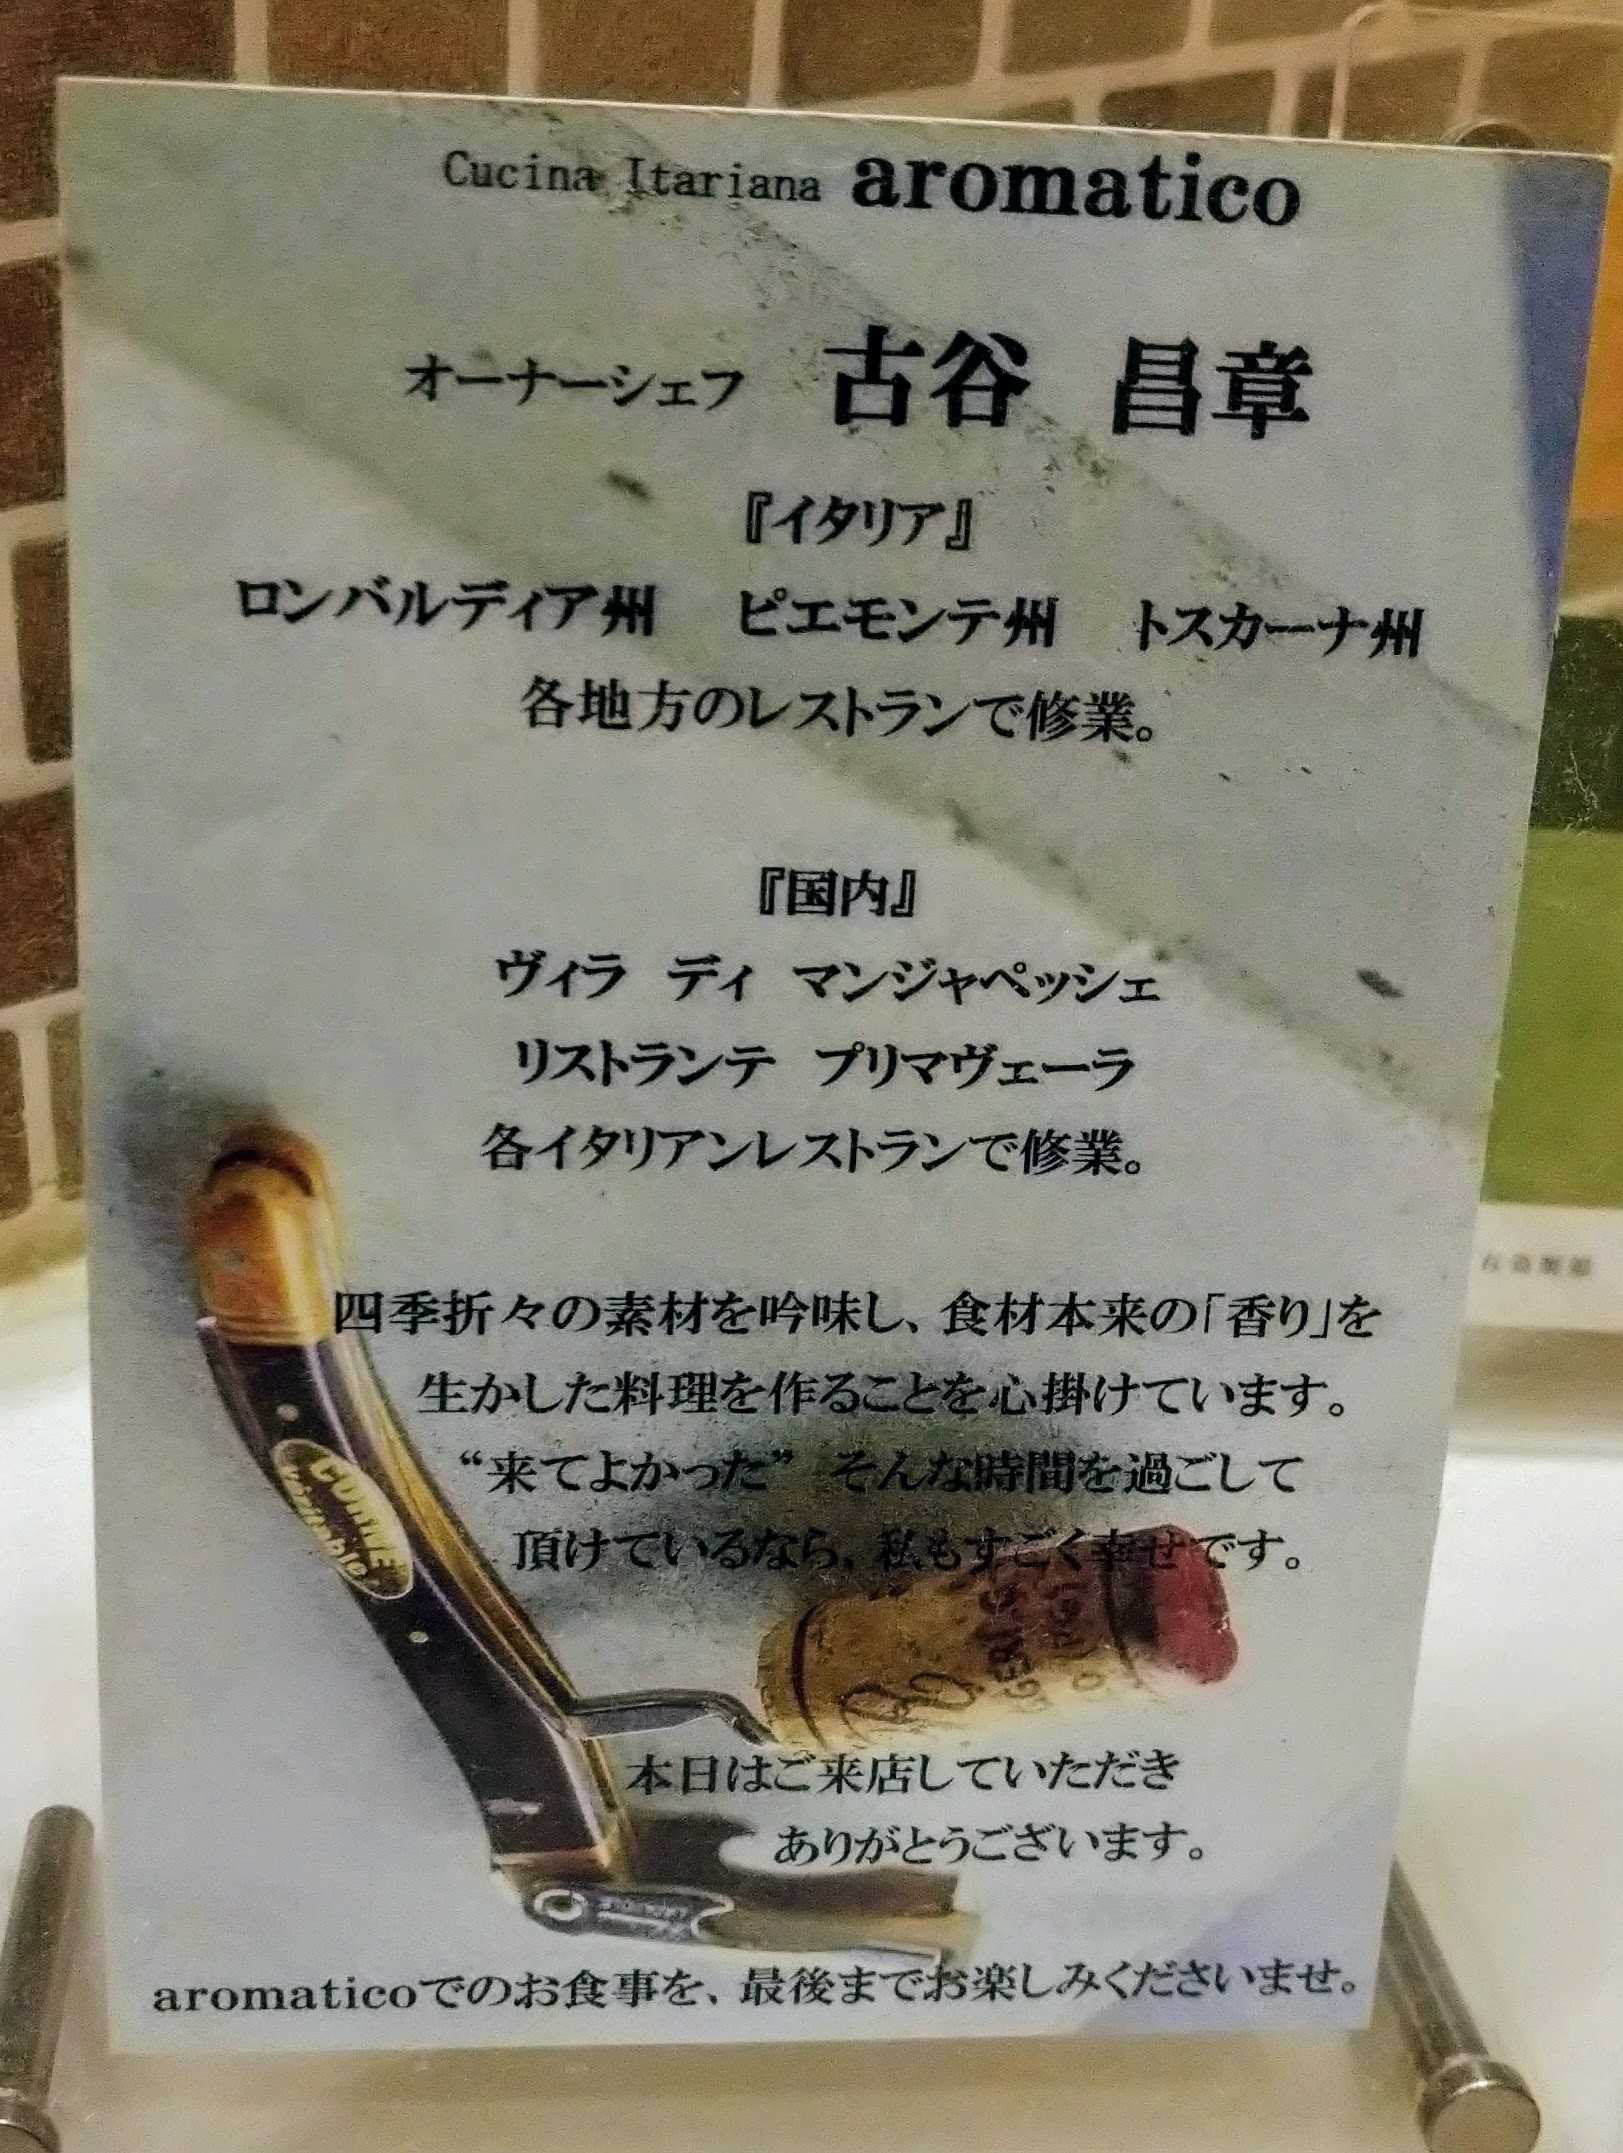 Cucina Itariana aromatico
オーナーシェフ 古谷 昌章
『イタリア』
ロンバルディア州 ピエモンテ州 トスカーナ州
各地方のレストランで修業。
『国内』
ヴィラ ディ マンジャペッシェ
リストランテ プリマヴェーラ
各イタリアンレストランで修業。
四季折々の素材を吟味し、食材本来の「香り」を
生かした料理を作ることを心掛けています。
“来てよかった” そんな時間を過ごして
頂けているなら、私もすごく幸せです。
本日はご来店していただき
ありがとうございます。
aromaticoでのお食事を、最後までお楽しみくださいませ。